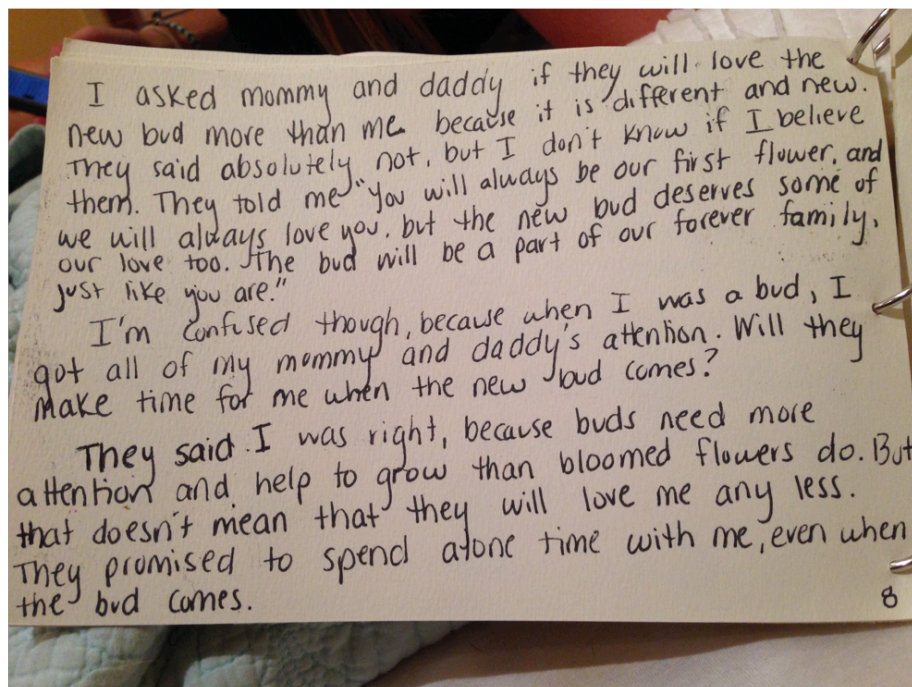 I asked mommy and daddy if they will love the
new bud more than me because it is different and new.
They said absolutely not, but I don't know if I believe
them. They told me "you will always be our first flower, and
we will always love you, but the new bud deserves some of
our love too. The bud will be a part of our forever family,
just like you are."
I'm confused though, because when I was a bud, I
got all of my mommy and daddy's attention. Will they
make time for me when the new bud comes?
They said I was right, because buds need more
attention and help to grow than bloomed flowers do. But
that doesn't mean that they will love me any less.
They promised to spend alone time with me, even when
the bud comes.
8